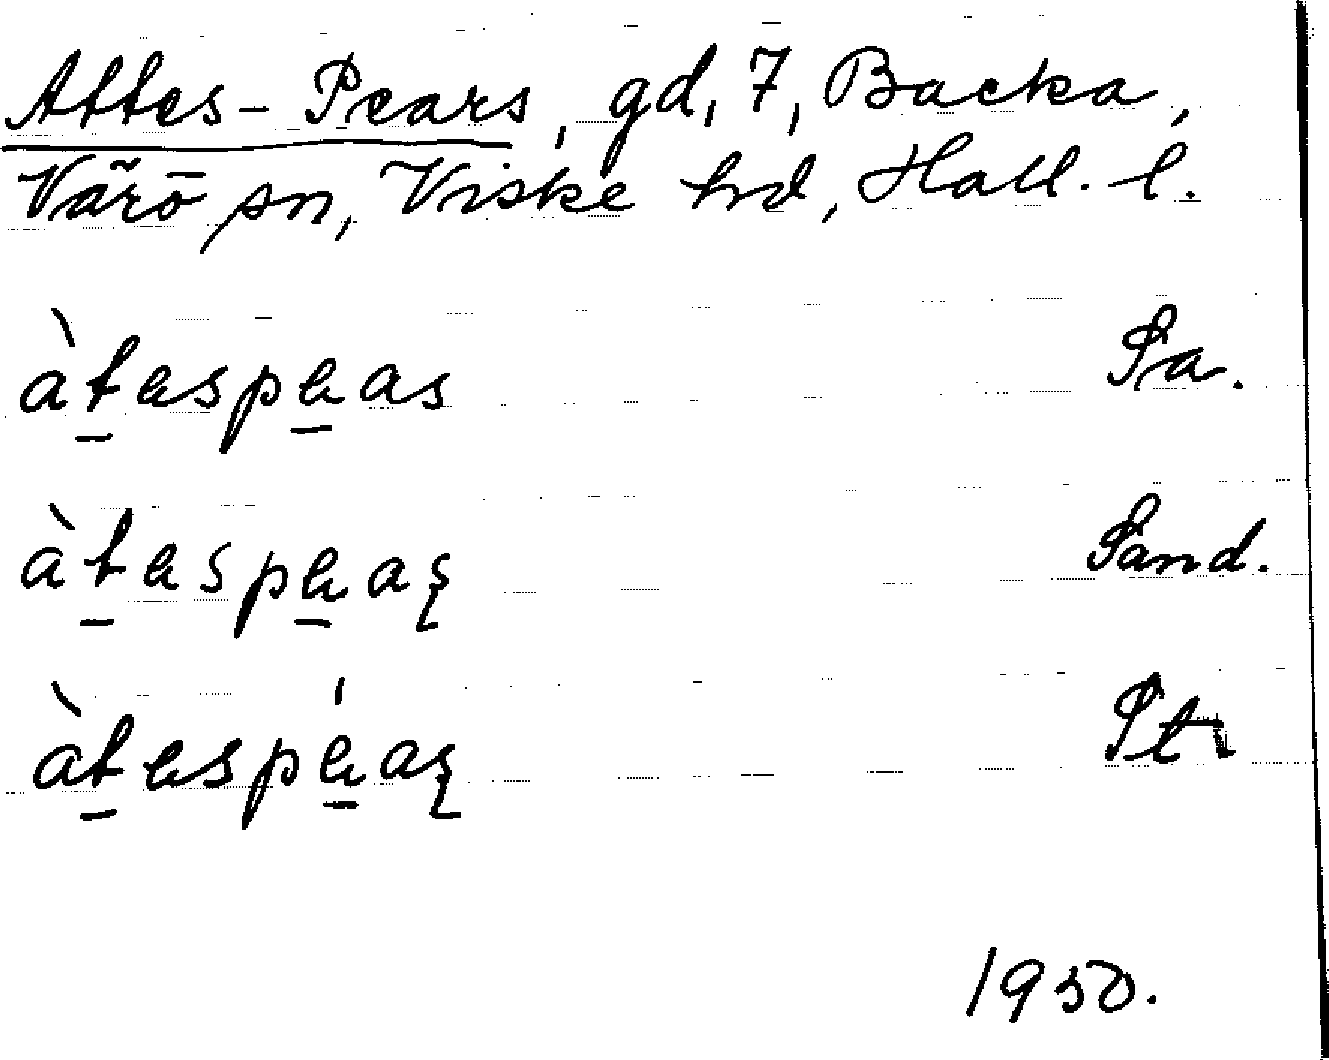 Attes-Pears, gd, 7, Backa,
Värö sn, Viske hd, Hall. l.
àtespeas Sa.
àtespeas Sand.
àtespéas St
1950.